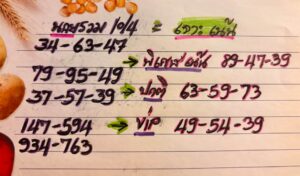 10/4 = เจาะ เน้น
34-63-47
→ พิเศษ เน้น 89-47-39
79-95-49
37-57-39 → ปกติ 63-59-73
147-594 → VIP 49-54-39
934-763